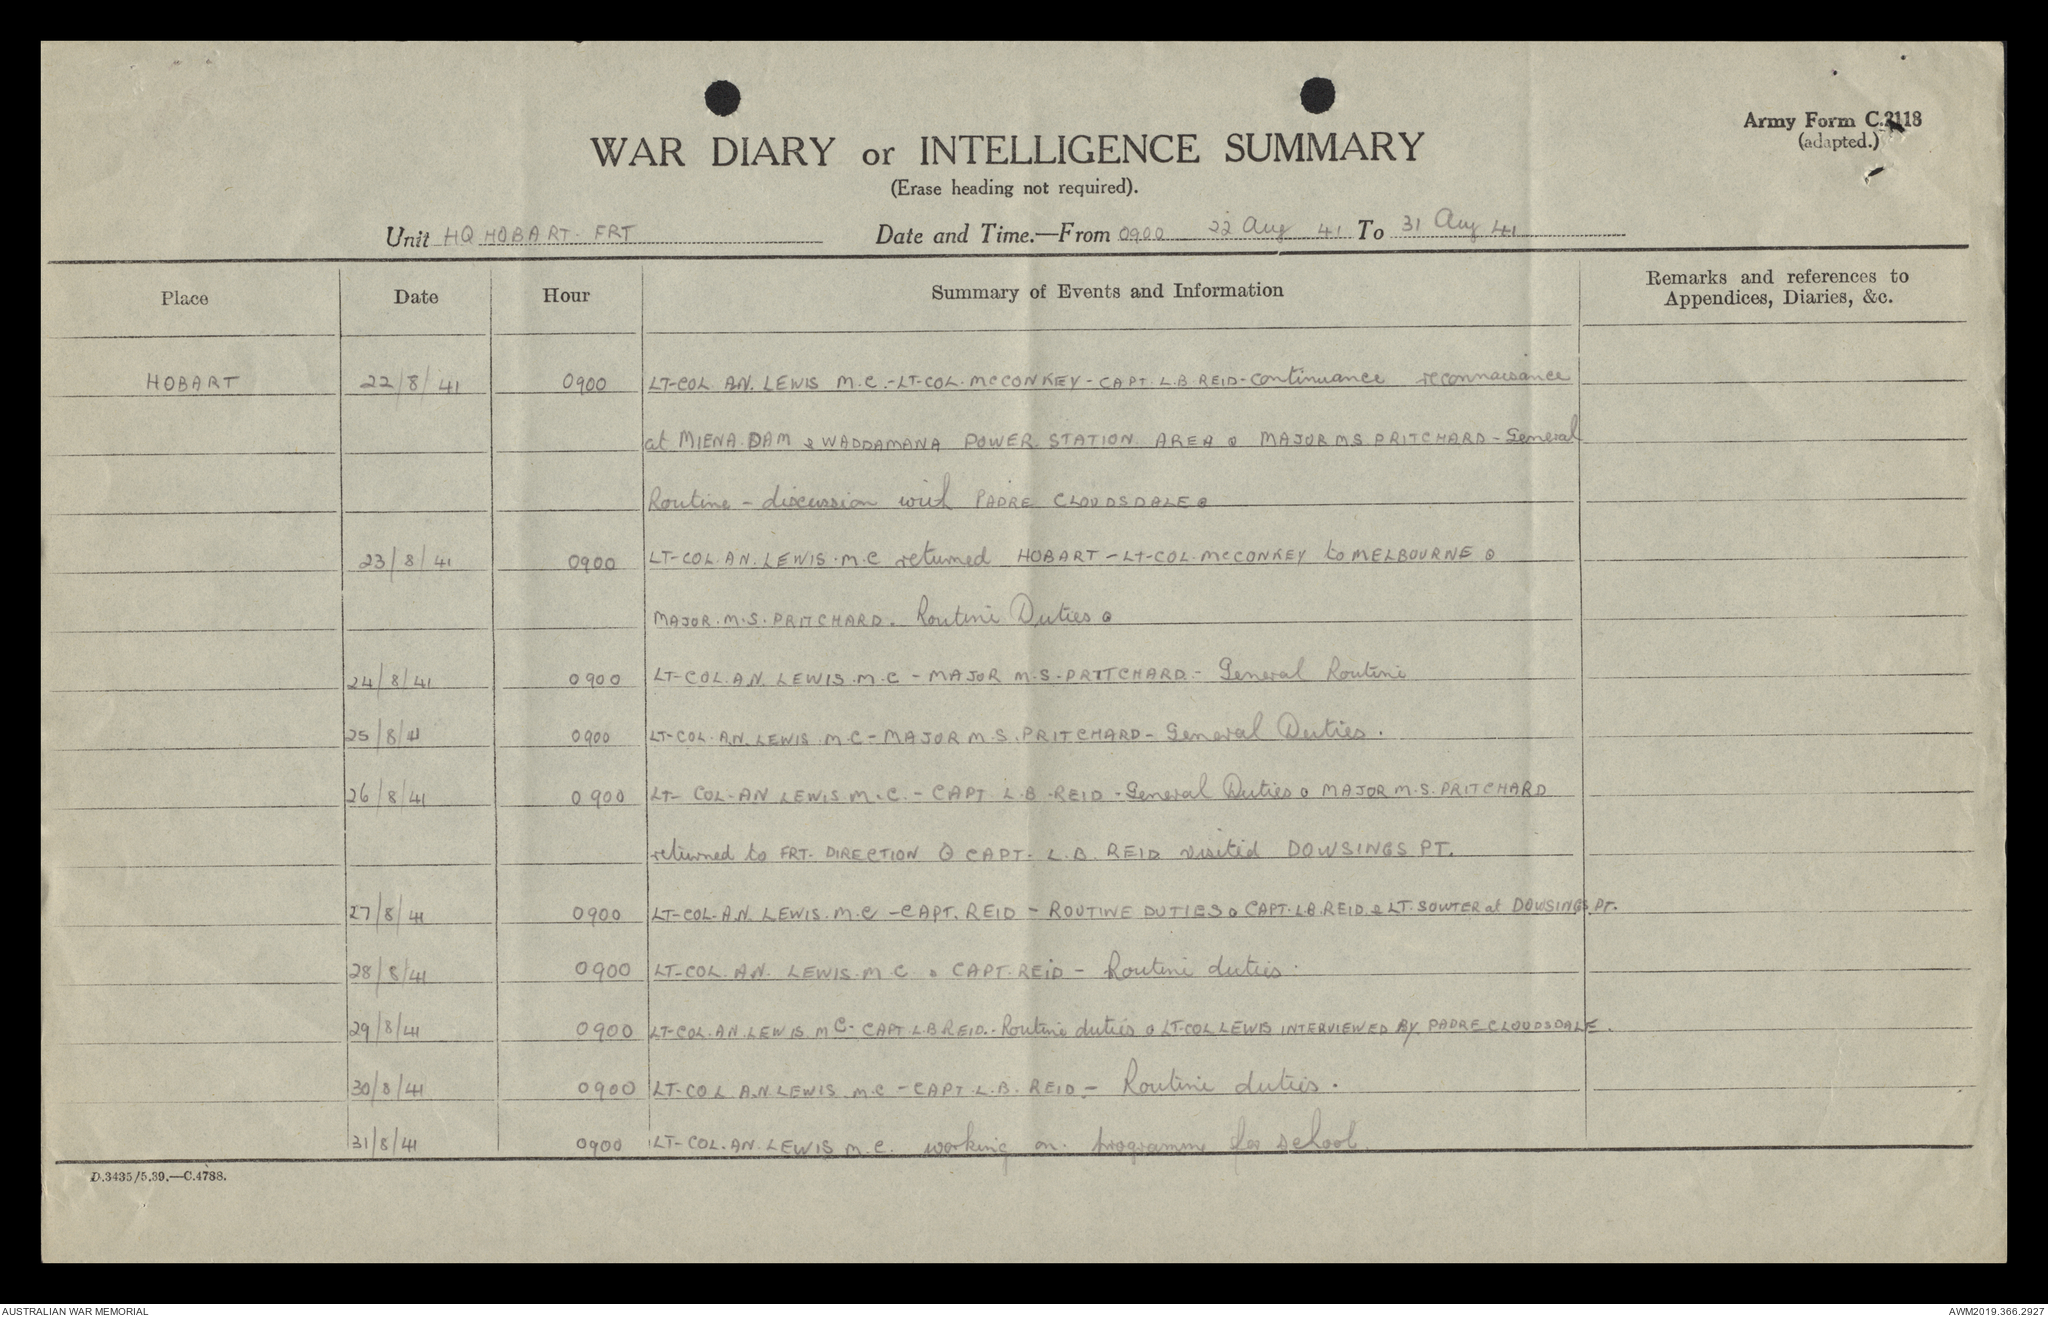 Army Form C.2118
(adapted.)
WAR DIARY or INTELLIGENCE SUMMARY
(Erase heading not required).
Unit HQ HOBART. FRT Date and Time.—From 0900 22 Aug 41 To 31 Aug 41
Place Date Hour Summary of Events and Information Remarks and references to Appendices, Diaries, &c.
HOBART 22/8/41 0900 LT-COL. A.N. LEWIS M.C.-LT-COL. McCONKEY-CAPT. L.B REID-continuance reconnaisance
at MIENA.DAM & WADDAMANA POWER STATION AREA . MAJOR M S PRITCHARD - General
Routine - discussion with PADRE CLOUDSDALE.
23/8/41 0900 LT-COL. A.N. LEWIS. M.C returned HOBART - LT-COL. McCONKEY to MELBOURNE .
MAJOR. M.S. PRITCHARD. Routine Duties .
24/8/41 0900 LT-COL. A.N. LEWIS. M.C - MAJOR M.S. PRITCHARD. - General Routine
25/8/41 0900 LT-COL. A.N. LEWIS M C - MAJOR M.S. PRITCHARD - General Duties.
26/8/41 0900 LT- COL- A N LEWIS M.C. - CAPT. L.B. REID - General Duties . MAJOR M.S. PRITCHARD
returned to FRT. DIRECTION . CAPT. L.B. REID visited DOWSINGS PT.
27/8/41 0900 LT-COL. A.N. LEWIS. M.C - CAPT. REID - ROUTINE DUTIES . CAPT. L.B. REID & LT. SOWTER at DOWSINGS PT.
28/8/41 0900 LT-COL. A.N. LEWIS. M C . CAPT. REID - Routine duties.
29/8/41 0900 LT-COL. A.N. LEWIS. M C - CAPT L.B REID. - Routine duties . LT-COL LEWIS INTERVIEWED BY PADRE CLOUDSDALE.
30/8/41 0900 LT-COL A.N. LEWIS M.C - CAPT. L.B. REID - Routine duties.
31/8/41 0900 LT-COL. A.N. LEWIS M.C. working on programme for school.
D.3435/5.39.—C.4788.
AUSTRALIAN WAR MEMORIAL AWM2019.366.2927